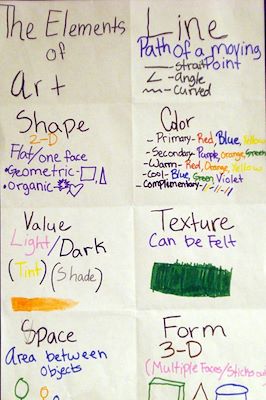 The Elements
of
Art
Line
Path of a moving
Point
strait
angle
curved
Shape
2-D
Flat/one face
Geometric-
Organic-
Color
- Primary- Red, Blue, Yellow
- Secondary- Purple, Orange, Green
- Warm- Red, Orange, Yellow
- Cool- Blue, Green, Violet
- Complementary-
Value
Light/Dark
(Tint) (Shade)
Texture
Can be Felt
Space
Area between
objects
Form
3-D
(Multiple Faces/Sticks out